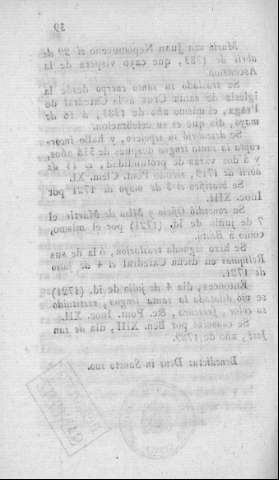 39
Murió san Juan Nepomuceno el 29 de
abril de 1383, que cayó víspera de la
Ascension.
Se trasladó su santo cuerpo desde la
iglesia de santa Cruz á la Catedral de
Praga, el mismo año de 1383, á 16 de
mayo, dia que es su celebracion.
Se descubrió su sepulcro, y halló incor-
rupta la santa lengua despues de 336 años,
y á dos varas de profundidad, á 15 de
abril de 1719, siendo Pont. Clem. XI.
Se beatificó el 8 de mayo de 1721 por
Inoc. XIII.
Se concedió Oficio y Misa de Mártir el
7 de junio de id. (1721) por el mismo,
como á Beato.
Se hizo segunda traslacion, ó la de sus
Reliquias en dicha Catedral el 4 de julio
de 1721.
Entonces, dia 4 de julio de id. (1721)
se vió dilatada la santa lengua, existiendo
su color &c. Pont. Inoc. XII.
Se canonizó por Ben. XIII, dia de san
José, año de 1729.
Benedictus Deus in Sanctis suo.